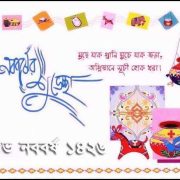 নববর্ষের
শুভেচ্ছা
মুছে যাক গ্লানি ঘুচে যাক জরা,
অগ্নিস্নানে শুচি হোক ধরা।
শুভ নববর্ষ ১৪২৬